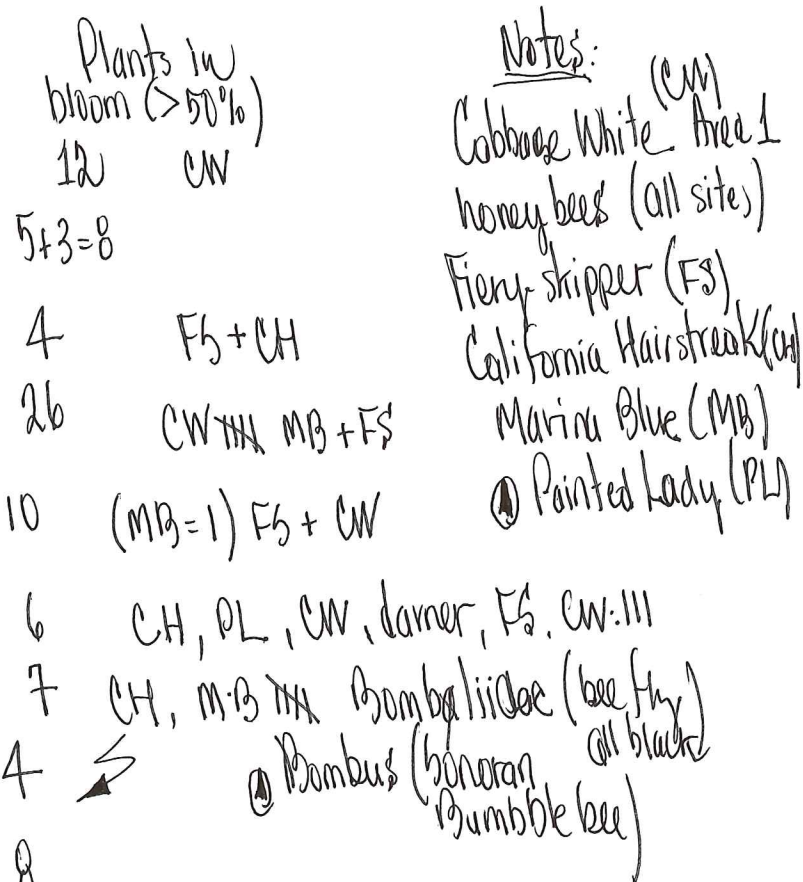 Plants in
bloom (>50%)
12 CW
5+3=8
4 FS + CH
26 CW 卌 MB + FS
10 (MB=1) FS + CW
6 CH, PL, CW, darner, FS, CW:III
7 CH, M.B 卌 Bombyliidae (bee fly)
all black
4
① Bombus (Sonoran
Bumbble bee)
8
Notes:
(CW)
Cabbage White Area 1
honey bees (all sites)
Fiery-skipper (FS)
California Hairstreak (CH)
Marina Blue (MB)
① Painted Lady (PL)